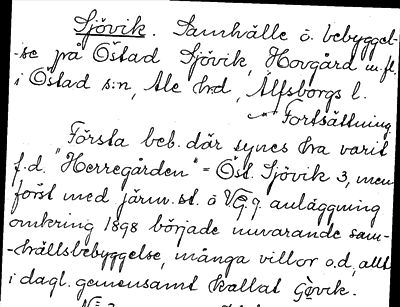 Sjövik. Samhälle o. bebyggel-
-se på Östad Sjövik, Hovgård m.fl.
i Östad s:n, Ale hd, Älfsborgs l.
Fortsättning
Första beb. där synes ha varit
f.d. "Herregården" = Öst. Sjövik 3, men
först med järnv. st. o VGg anläggning
omkring 1898 började nuvarande sam-
-hällsbebyggelse, många villor o.d., allt
i dagl. gemensamt kallat